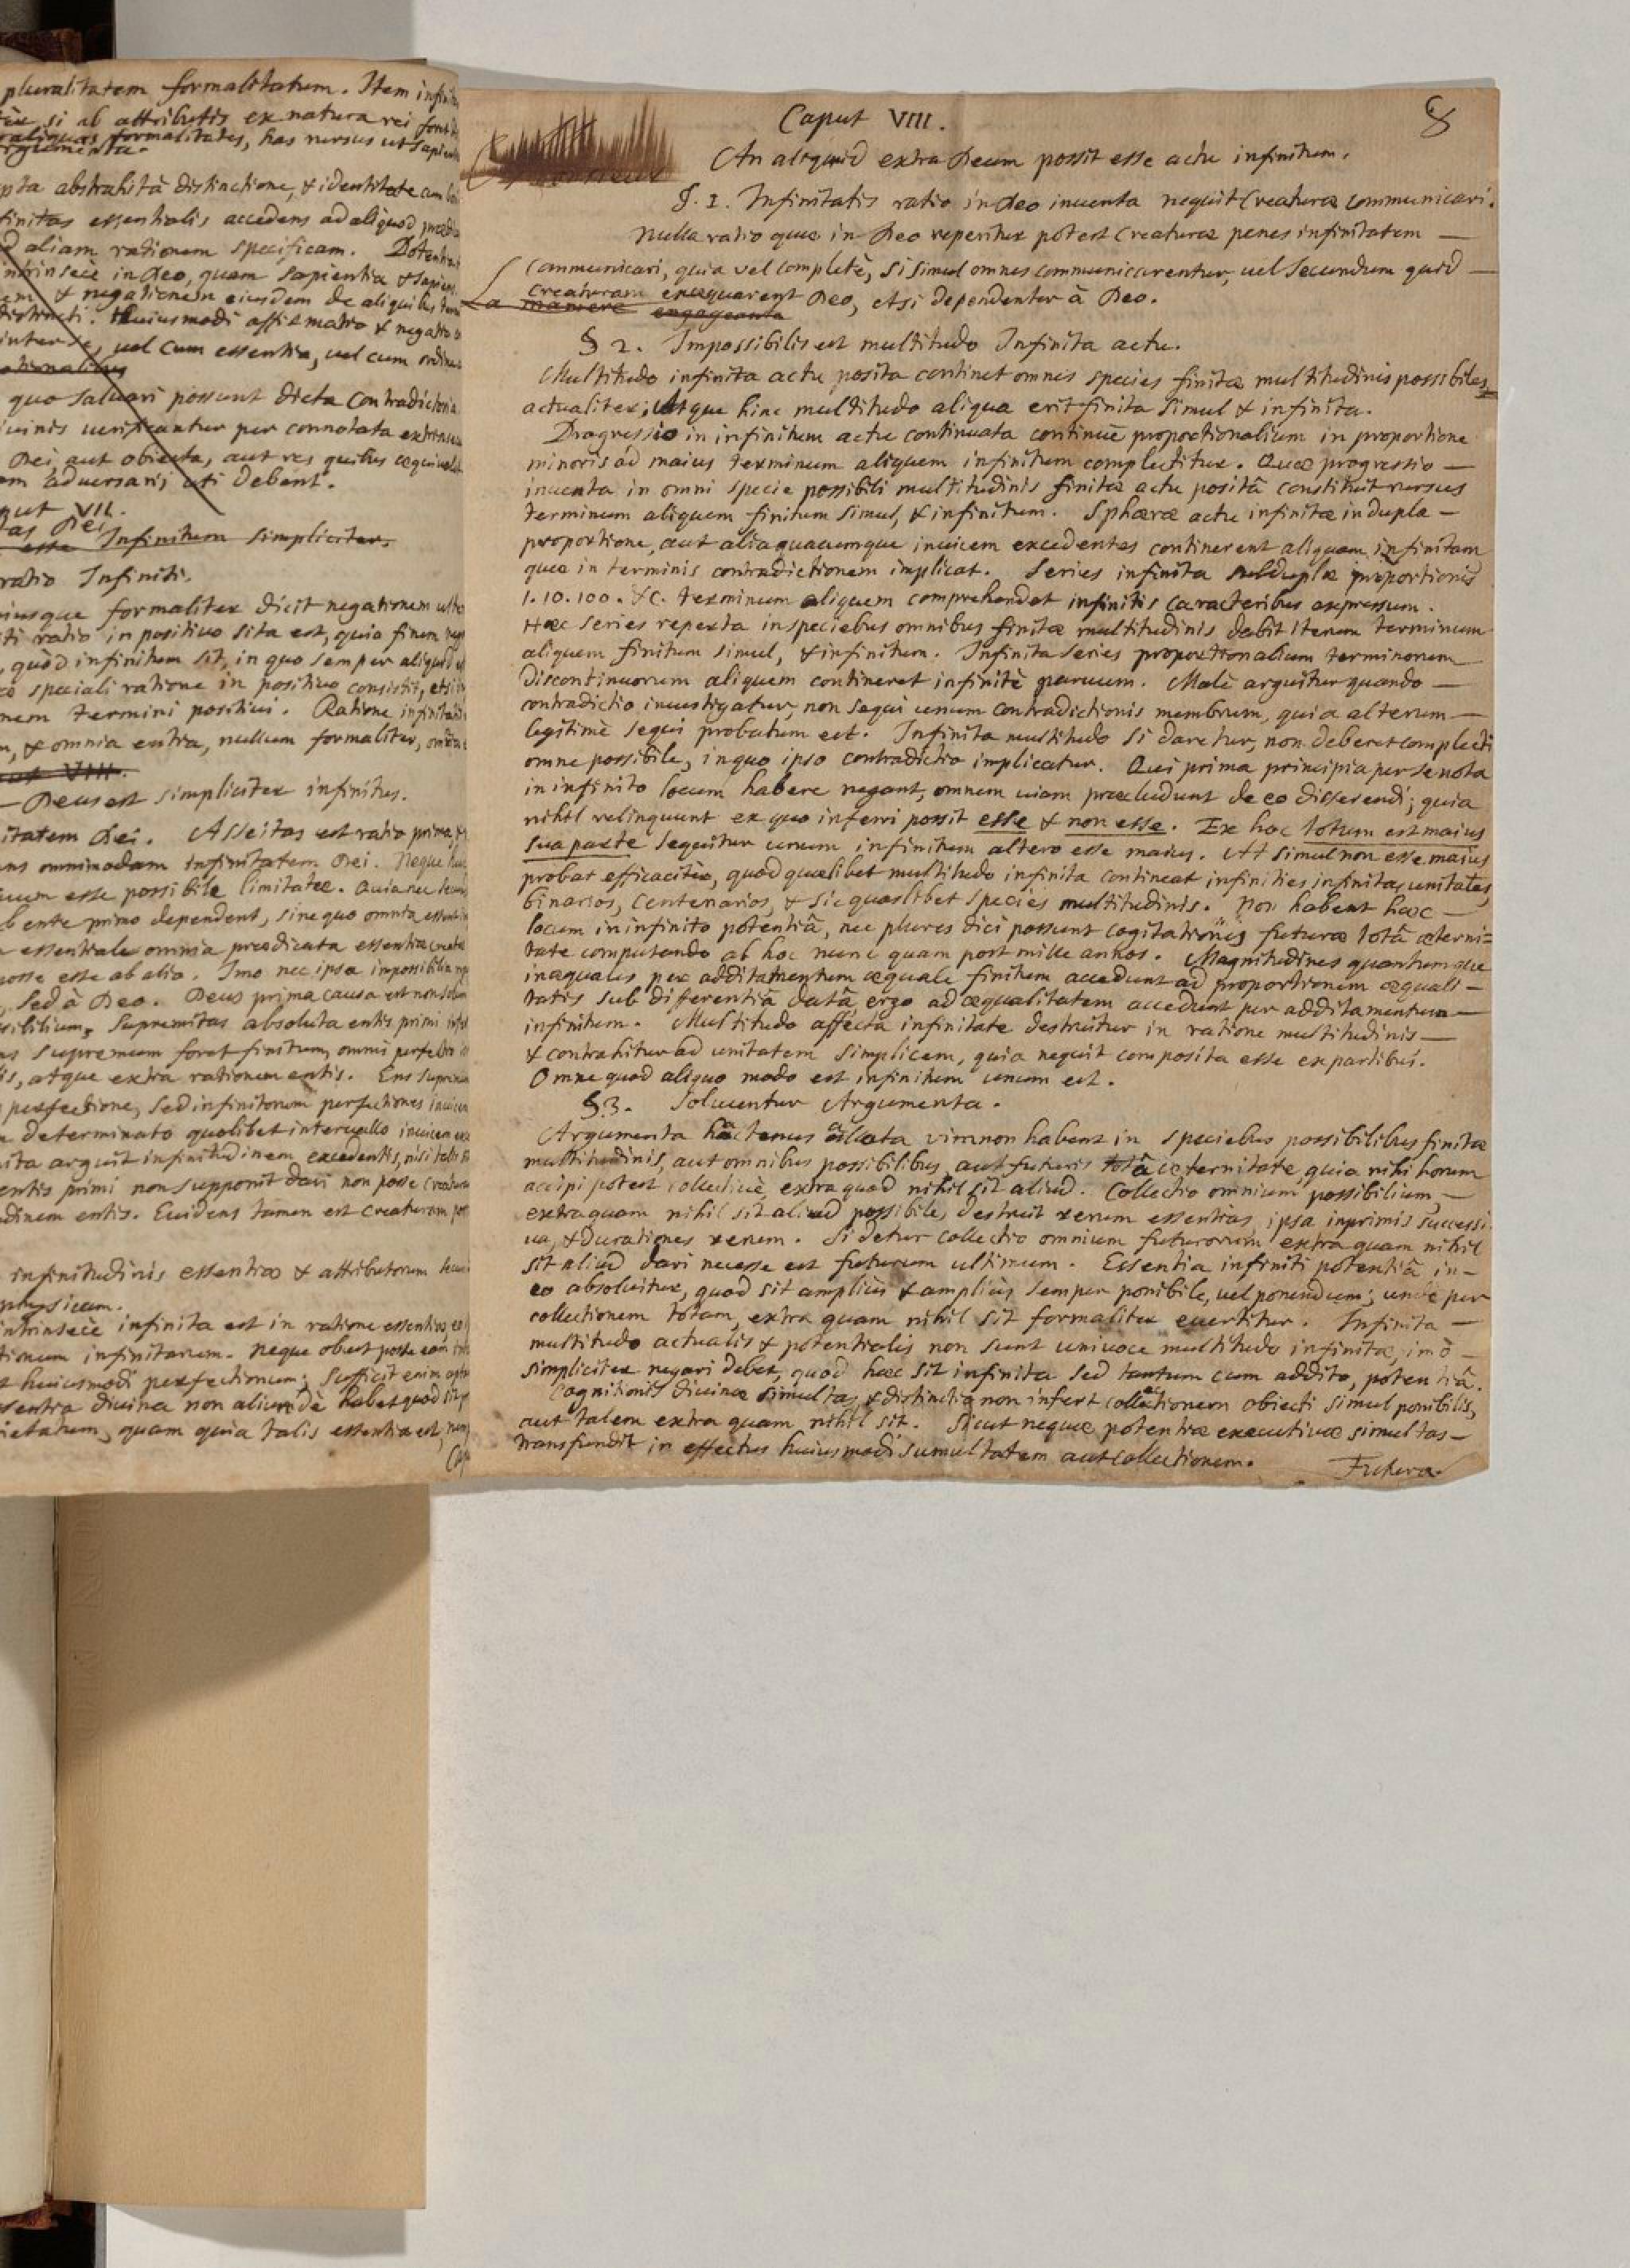 pluralitatem formalitatum. Item
si ab attributis ex natura rei
formalitates, has rursus ut
abstrahitâ distinctione, & identitate cum
essentialis accedens ad aliquod
aliam rationem specificam.
intrinsecè in Deo, quam sapientia &
& negationem eiusdem de aliquibus
Huiusmodi affirmatio & negatio
uel cum essentia, uel cum
quo saluari possunt dicta contradictoria
verificantur per connotata
Dei, aut obiecta, aut res quibus
adversarij uti debent.
VII.
Dei
esse Infinitum simpliciter.
ratio Infiniti.
formaliter dicit negationem
ratio in positiuo sita est, quia finem
quòd infinitum sit, in quo semper aliquid
speciali ratione in positiuo consistit, etsi
termini positiui. Ratione
& omnia entia, nullum formaliter,
VIII.
Deus est simpliciter infinitus.
Dei. Asseitas est ratio prima
omnimodam infinitatem Dei. Neque
esse possibile limitatae. quia nec
ente primo dependent, sine quo omnia
essentiale omnia praedicata essentiae
posse esse ab alio. Imo nec ipsa impossibilia
sed à Deo. Deus prima causa est non solum
Supremitas absoluta entis primi
supremum foret finitum, omni
atque extra rationem entis. Ens
perfectione, sed infinitorum perfectiones
determinato quolibet interuallo
arguit infinitudinem excedentis, nisi
entis primi non supponit dari non posse
entis. Euidens tamen est creaturam
infinitudinis essentiae & attributorum
physicam.
intrinsecè infinita est in ratione essentiae,
infinitarum. Neque obest posse
huiusmodi perfectionum; sufficit enim
divina non aliundè habet quod sit
quam quia talis essentia est,
8
Caput VIII.
An aliquid extra Deum possit esse actu infinitum.
§. 1. Infinitatis ratio in Deo inuenta nequit Creaturae communicari.
Nulla ratio quae in Deo reperitur potest Creaturae penes infinitatem —
Communicari, quia vel completè, si simul omnes communicarentur, uel secundum quid —
creaturam exaequarent Deo, etsi dependenter à Deo.
La maniere engageante
§ 2. Impossibilis est multitudo Infinita actu.
Multitudo infinita actu posita continet omnes species finitae multitudinis possibiles
actualiter; Atque hinc multitudo aliqua erit finita simul & infinita.
Progressio in infinitum actu continuata continuè proportionalium in proportione
minoris ad maius terminum aliquem infinitum complectitur. Quae progressio —
inuenta in omni specie possibili multitudinis finitae actu positâ constituit rursus
terminum aliquem finitum simul, & infinitum. Sphaerae actu infinitae in dupla —
proportione, aut alia quacumque inuicem excedentes continerent aliquam infinitam
quae in terminis contradictionem implicat. Series infinita subduplae proportionis
1. 10. 100. &c. terminum aliquem comprehendet infinitis caracteribus expressum.
Haec series reperta in speciebus omnibus finitae multitudinis dabit iterum terminum
aliquem finitum simul, & infinitum. Infinita series proportionalium terminorum
discontinuorum aliquem contineret infinitè paruum. Malè arguitur quando —
contradictio inuestigatur, non sequi unum contradictionis membrum, quia alterum —
legitimè sequi probatum est. Infinita multitudo si daretur, non deberet complecti
omne possibile, in quo ipso contradictio implicatur. Qui prima principia per se nota
in infinito locum habere negant, omnem uiam praecludunt de eo disserendi; quia
nihil relinquunt ex quo inferri possit esse & non esse. Ex hoc totum est maius
sua parte sequitur unum infinitum altero esse maius. At simul non esse maius
probat efficaciter, quod quaelibet multitudo infinita contineat infinities infinitas unitates,
binarios, centenarios, & sic quaslibet species multitudinis. Non habent haec —
locum in infinito potentiâ, nec plures dici possunt cogitationes futurae totâ aeterni=
tate computando ab hoc nunc quam post mille annos. Magnitudines quantumque
inaequales per additamentum aequale finitum accedunt ad proportionem aequali —
tatis sub differentiâ datâ ergo ad aequalitatem accedunt per additamentum —
infinitum. Multitudo affecta infinitate destruitur in ratione multitudinis —
& contrahitur ad unitatem simplicem, quia nequit composita esse ex partibus.
Omne quod aliquo modo est infinitum unum est.
§ 3. Soluuntur Argumenta.
Argumenta hactenus allata vim non habent in speciebus possibilibus finitae
multitudinis, aut omnibus possibilibus, aut futuris totâ aeternitate, quia nihil horum
accipi potest collectiuè, extra quod nihil sit aliud. Collectio omnium possibilium —
extra quam nihil sit aliud possibile, destruit rerum essentias, ipsa inprimis successi
ua, & durationes rerum. Si detur collectio omnium futurorum extra quam nihil
sit aliud dari necesse est futurum ultimum. Essentia infiniti potentiâ in —
eo absoluitur, quod sit ampliùs & ampliùs semper ponibile, uel ponendum; undè per
collectionem totam, extra quam nihil sit formaliter euertitur. Infinita —
multitudo actualis & potentialis non sunt univoce multitudo infinita, imò —
simpliciter negari debet, quod haec sit infinita sed tantum cum addito, potentiâ.
Cognitionis diuinae simultas, & distinctio non infert collectionem obiecti simul ponibilis,
aut talem extra quam nihil sit. Sicut neque potentiae executiuae simultas —
transfundit in effectus huiusmodi simultatem aut collectionem.
Futura